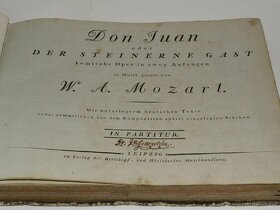 Don Juan
oder
DER STEINERNE GAST
komische Oper in zwey Aufzügen
in Musik gesetzt von
W. A. Mozart.
Mit unterlegtem deutschen Texte
nebst sämmtlichen von dem Komponisten später eingelegten Stücken
IN PARTITUR.
LEIPZIG
im Verlag der Breitkopf- und Härtelschen Musikhandlung.